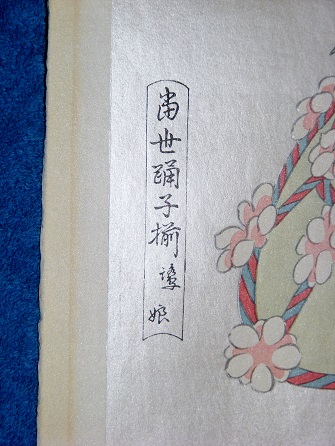 當世踊子揃 鷺娘